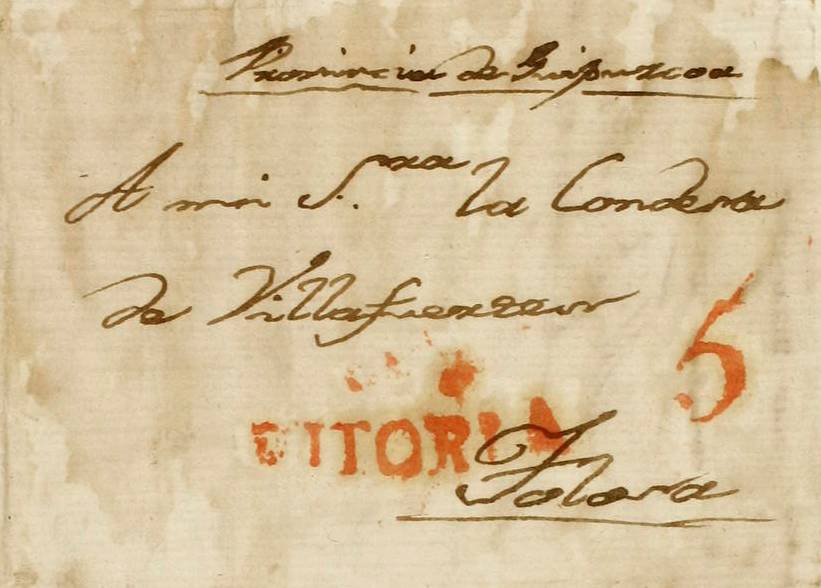 Provincia de Guipuzcoa
A mi S.ra la Condesa
de Villafuertes
5
VITORIA
Tolosa